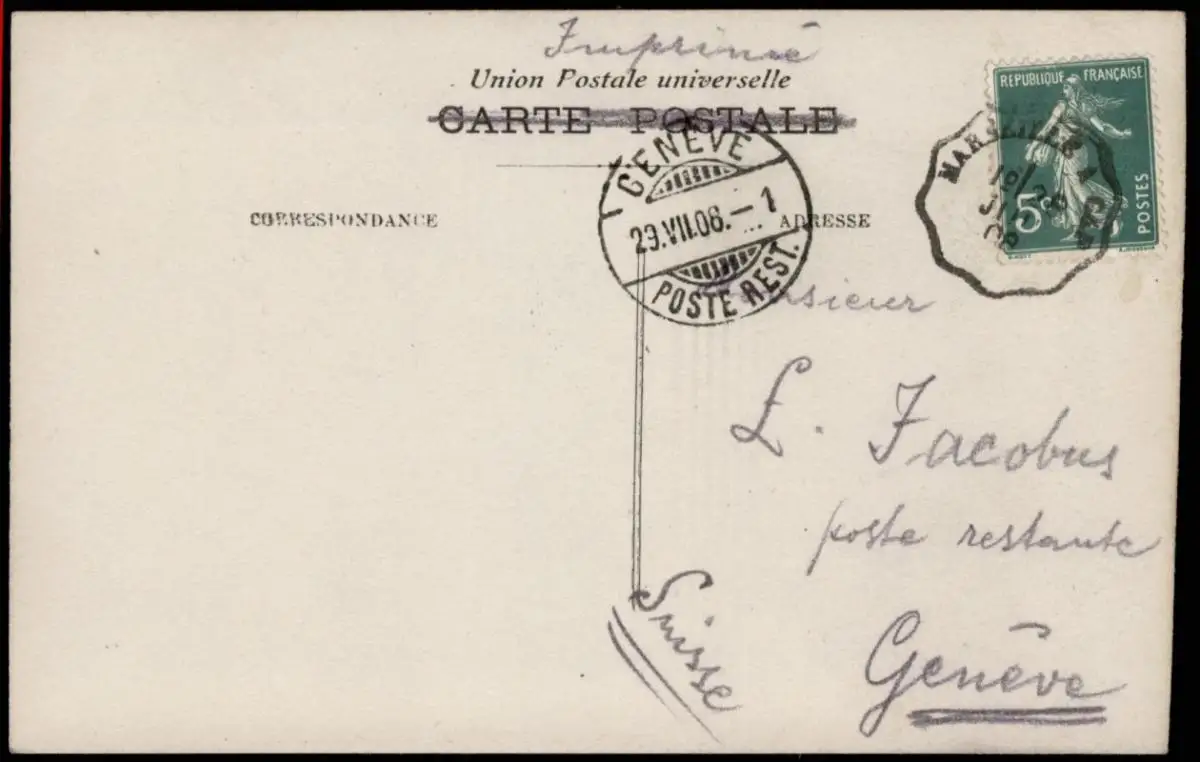 Imprimé
Union Postale universelle
CARTE POSTALE
CORRESPONDANCE
ADRESSE
GENÈVE
29.VII.06.–1
POSTE REST.
RÉPUBLIQUE FRANÇAISE
5c
POSTES
MARSEILLE A
Monsieur
L. Jacobus
poste restante
Genève
Suisse